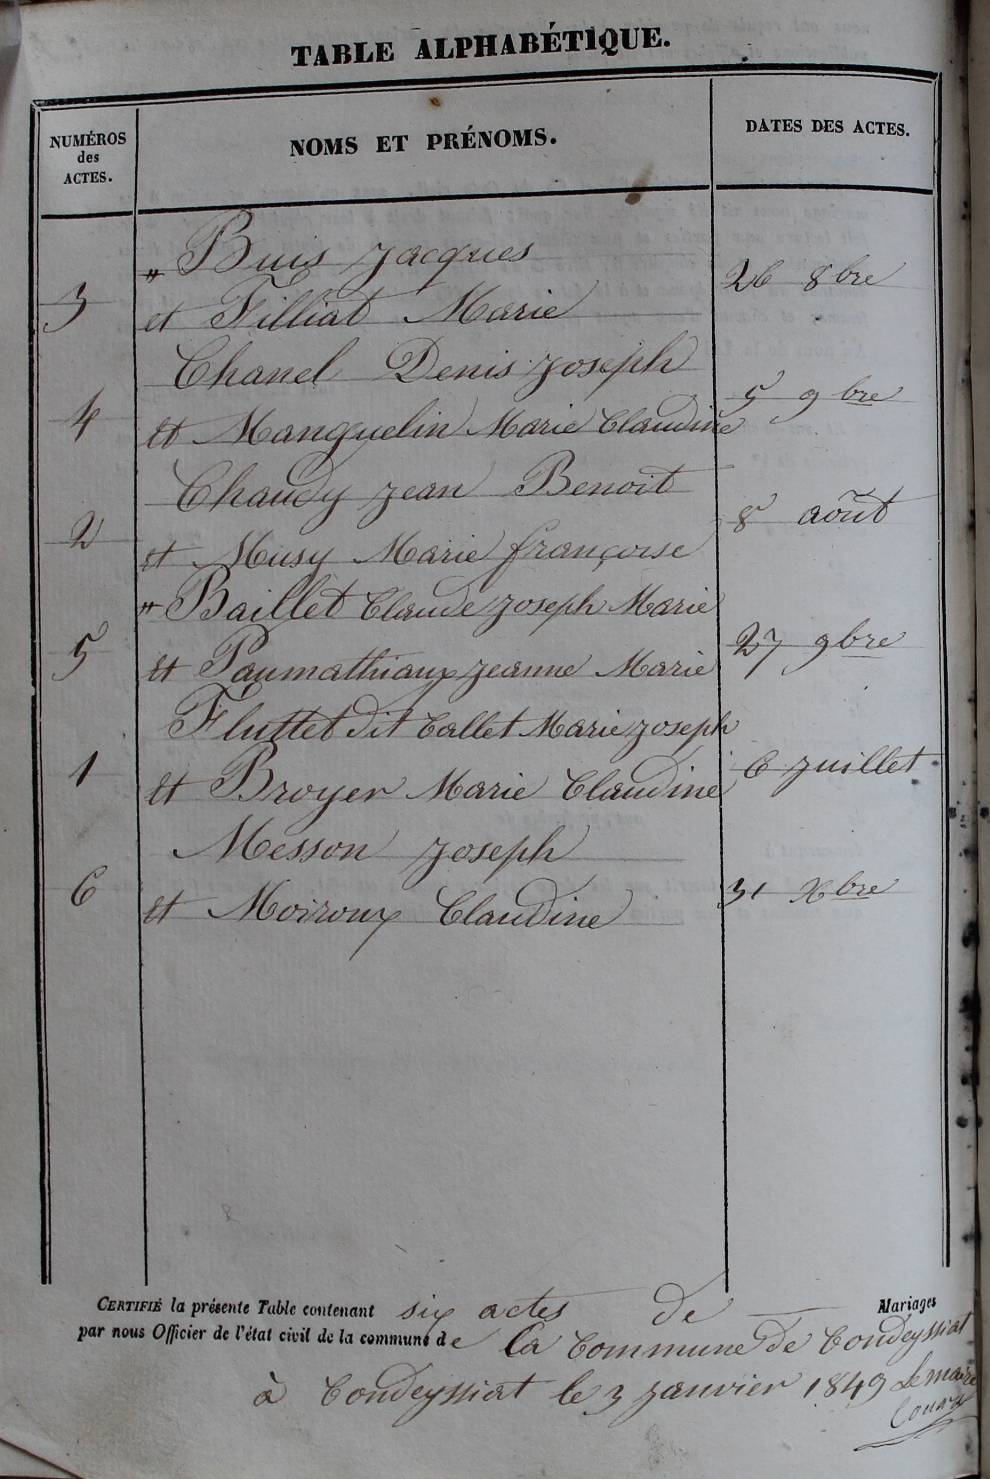 TABLE ALPHABÉTIQUE.
NUMÉROS
des
ACTES.
NOMS ET PRÉNOMS.
DATES DES ACTES.
" Buis Jacques
3 et Filliat Marie 26 8bre
Chanel Denis Joseph
4 et Manguelin Marie Claudine 5 9bre
Chaudy Jean Benoit
2 et Musy Marie françoise 8 août
" Baillet Claude Joseph Marie
5 et Paumathiaux Jeanne Marie 27 9bre
Fluttet dit Callet Marie Joseph
1 et Broyer Marie Claudine 6 Juillet
Messon Joseph
6 et Moiroux Claudine 31 Xbre
CERTIFIÉ la présente Table contenant six actes de Mariages
par nous Officier de l'état civil de la commune de la Commune de Condeyssiat
à Condeyssiat le 3 Janvier 1849 Le maire